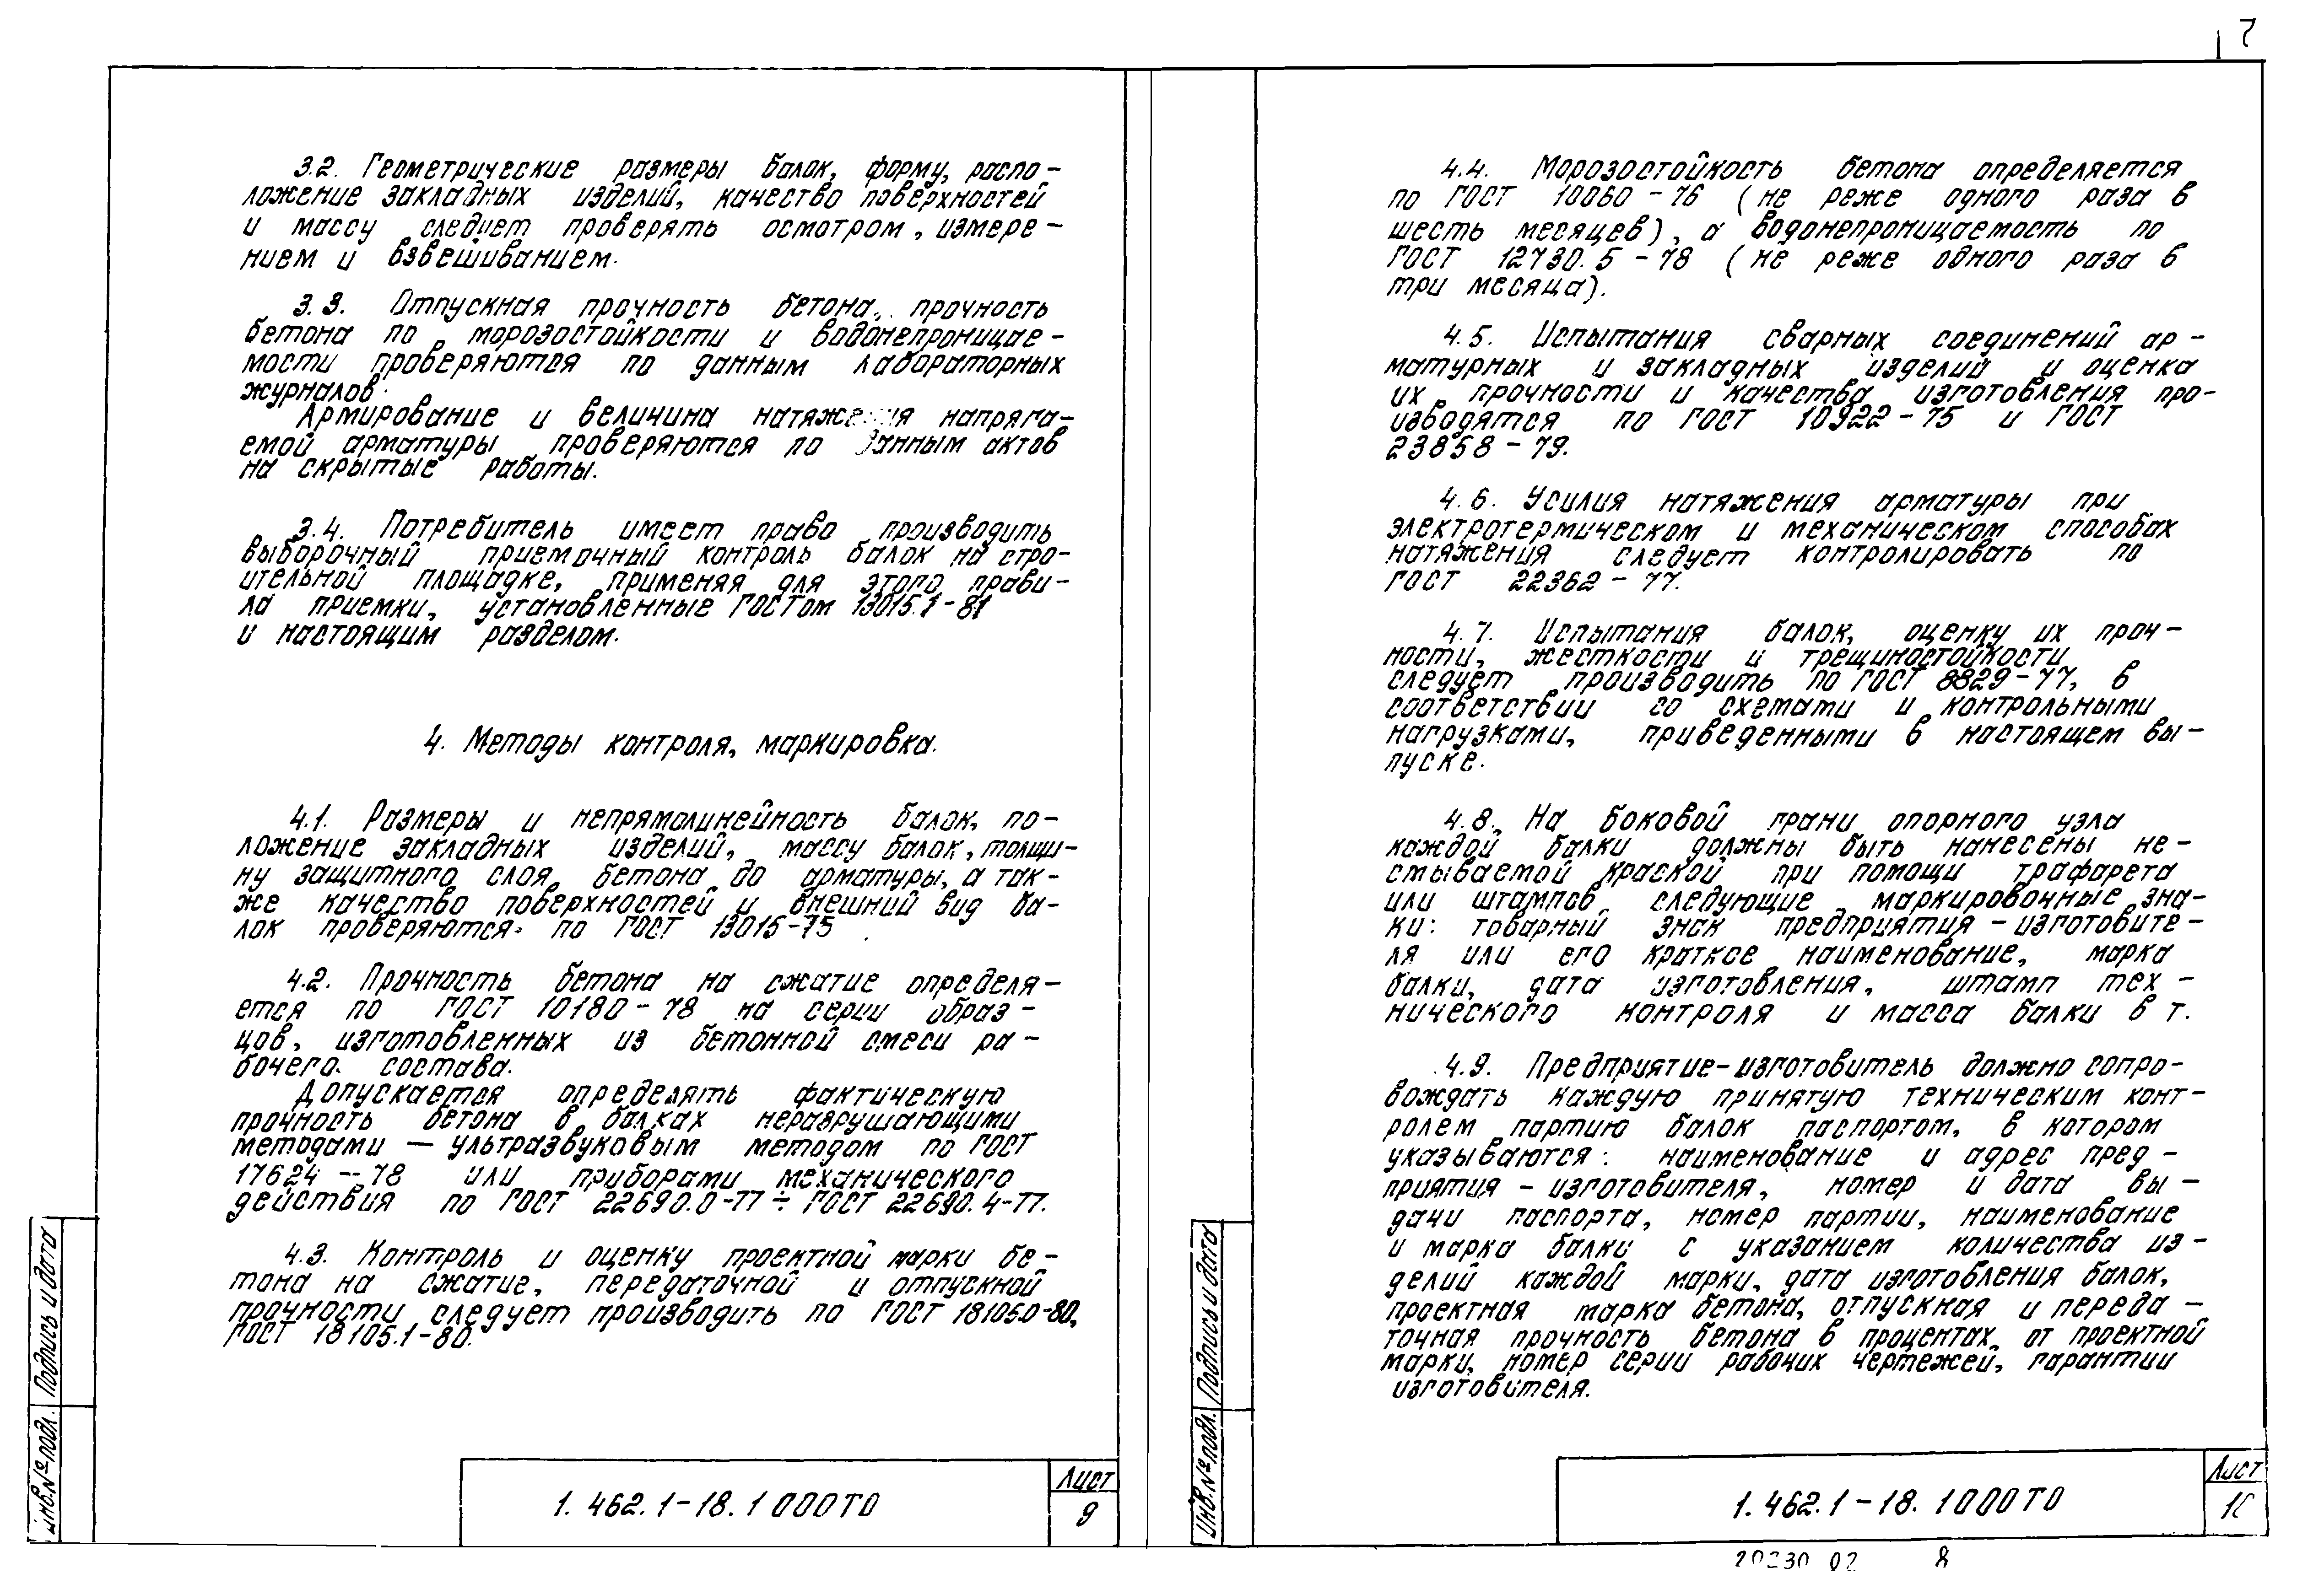 7
3.2. Геометрические размеры балок, форму, распо-
ложение закладных изделий, качество поверхностей
и массу следует проверять осмотром, измере-
нием и взвешиванием.
3.3. Отпускная прочность бетона, прочность
бетона по морозостойкости и водонепроницае-
мости проверяются по данным лабораторных
журналов.
Армирование и величина натяжения напряга-
емой арматуры проверяются по данным актов
на скрытые работы.
3.4. Потребитель имеет право производить
выборочный приемочный контроль балок на стро-
ительной площадке, применяя для этого прави-
ла приемки, установленные ГОСТом 13015.1-81
и настоящим разделом.
4. Методы контроля, маркировка.
4.1. Размеры и непрямолинейность балок, по-
ложение закладных изделий, массу балок, толщи-
ну защитного слоя бетона до арматуры, а так-
же качество поверхностей и внешний вид ба-
лок проверяются по ГОСТ 13015-75
4.2. Прочность бетона на сжатие определя-
ется по ГОСТ 10180-78 на серии образ-
цов, изготовленных из бетонной смеси ра-
бочего состава.
Допускается определять фактическую
прочность бетона в балках неразрушающими
методами — ультразвуковым методом по ГОСТ
17624-78 или приборами механического
действия по ГОСТ 22690.0-77 ÷ ГОСТ 22690.4-77.
4.3. Контроль и оценку проектной марки бе-
тона на сжатие, передаточной и отпускной
прочности следует производить по ГОСТ 18105.0-80,
ГОСТ 18105.1-80.
Инв.№подл. Подпись и дата
1.462.1-18.1 000ТО
Лист
9
4.4. Морозостойкость бетона определяется
по ГОСТ 10060-76 (не реже одного раза в
шесть месяцев), а водонепроницаемость по
ГОСТ 12730.5-78 (не реже одного раза в
три месяца).
4.5. Испытания сварных соединений ар-
матурных и закладных изделий и оценка
их прочности и качества изготовления про-
изводятся по ГОСТ 10922-75 и ГОСТ
23858-79.
4.6. Усилия натяжения арматуры при
электротермическом и механическом способах
натяжения следует контролировать по
ГОСТ 22362-77.
4.7. Испытания балок, оценку их проч-
ности, жесткости и трещиностойкости
следует производить по ГОСТ 8829-77, в
соответствии со схемами и контрольными
нагрузками, приведенными в настоящем вы-
пуске.
4.8. На боковой грани опорного узла
каждой балки должны быть нанесены не-
смываемой краской при помощи трафарета
или штампов следующие маркировочные зна-
ки: товарный знак предприятия-изготовите-
ля или его краткое наименование, марка
балки, дата изготовления, штамп тех-
нического контроля и масса балки в т.
4.9. Предприятие-изготовитель должно сопро-
вождать каждую принятую техническим конт-
ролем партию балок паспортом, в котором
указываются: наименование и адрес пред-
приятия-изготовителя, номер и дата вы-
дачи паспорта, номер партии, наименование
и марка балки с указанием количества из-
делий каждой марки, дата изготовления балок,
проектная марка бетона, отпускная и переда-
точная прочность бетона в процентах от проектной
марки, номер серии рабочих чертежей, гарантии
изготовителя.
Инв.№подл. Подпись и дата
1.462.1-18.1 000ТО
Лист
10
20230 02 8